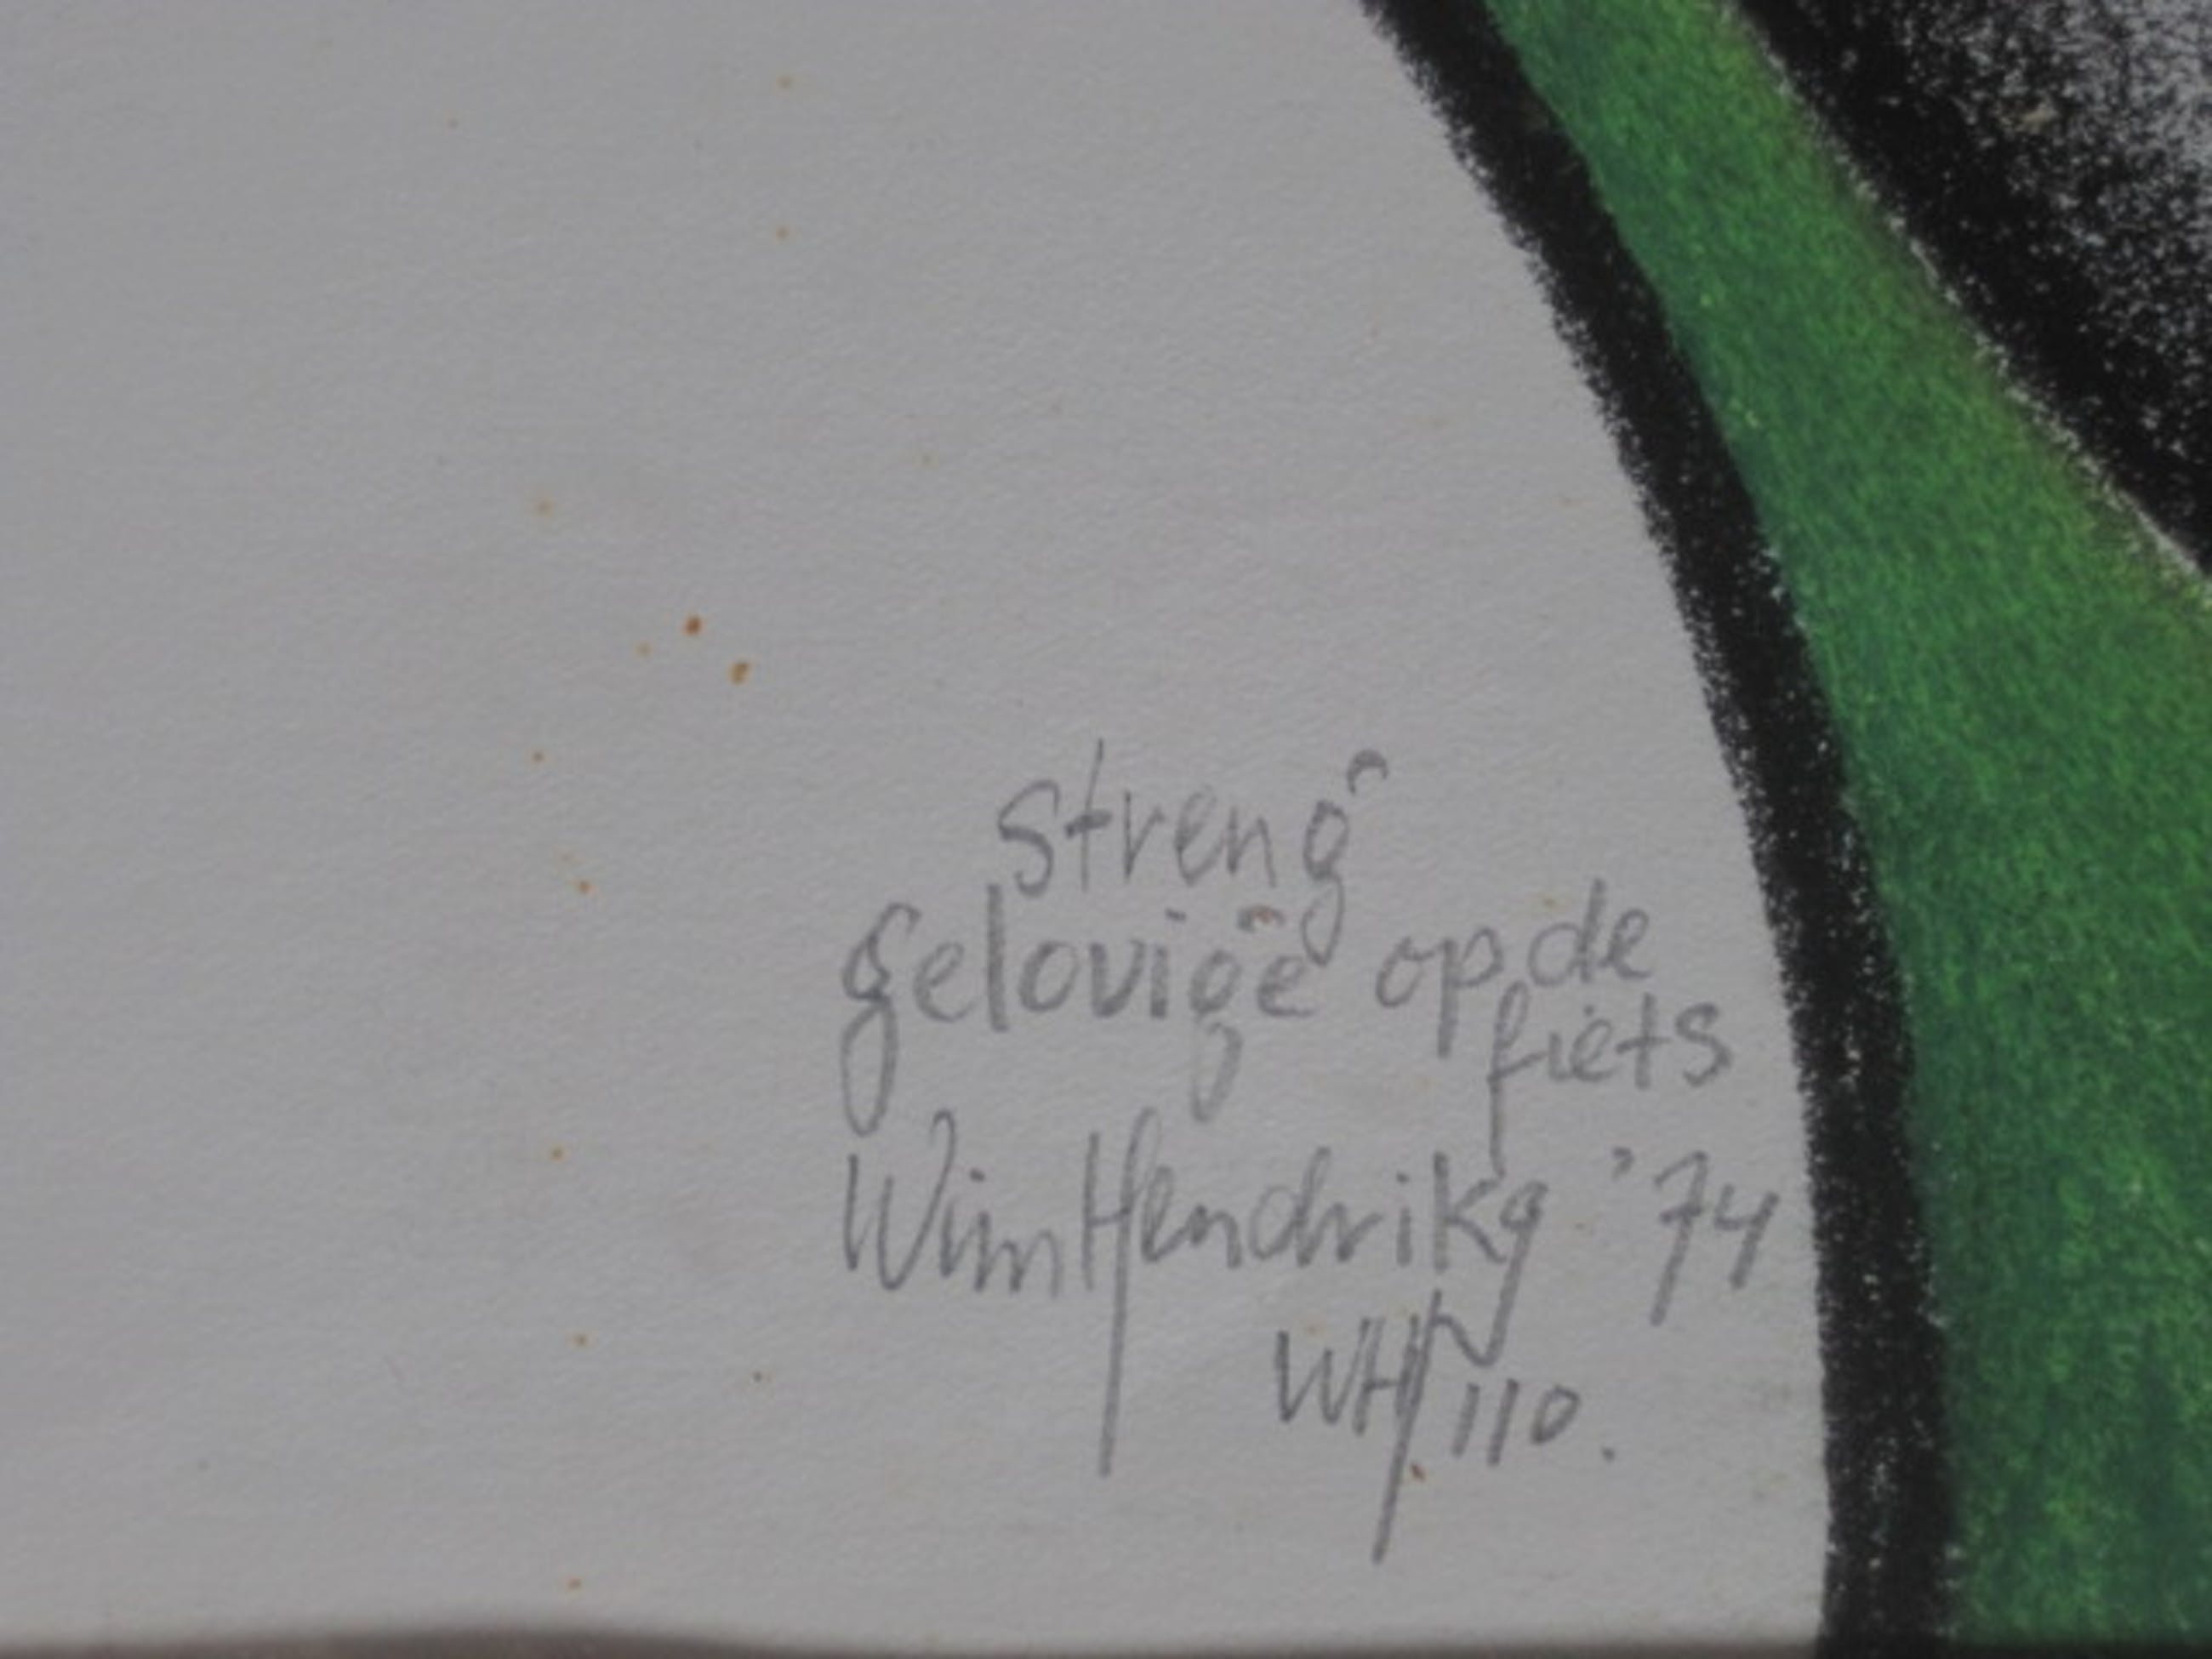 streng
gelovige op de
fiets
Wim Hendriks '74
WH 110.